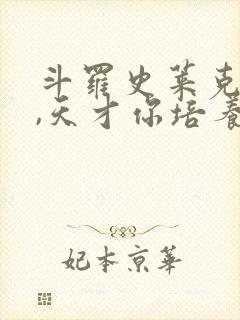 斗罗史莱克
,天才你培养
妃本京华